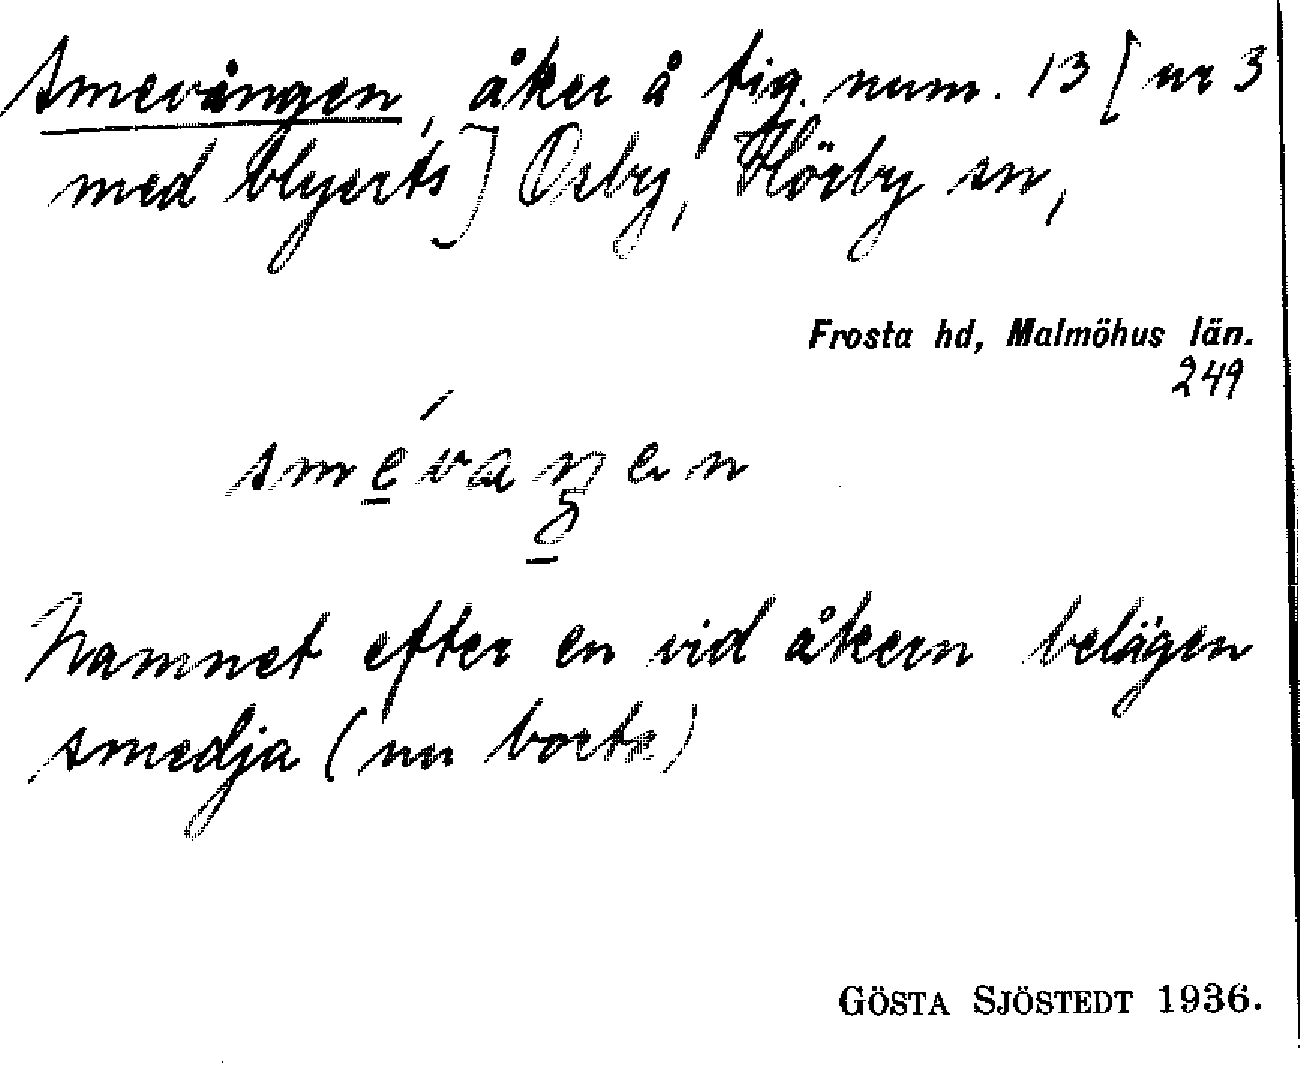 Smevången, åker å fig. num. 13 [nr 3
med blyerts] Osby, Hörby sn,
Frosta hd, Malmöhus län.
249
smévaŋen
Namnet efter en vid åkern belägen
smedja (nu borta)
GÖSTA SJÖSTEDT 1936.